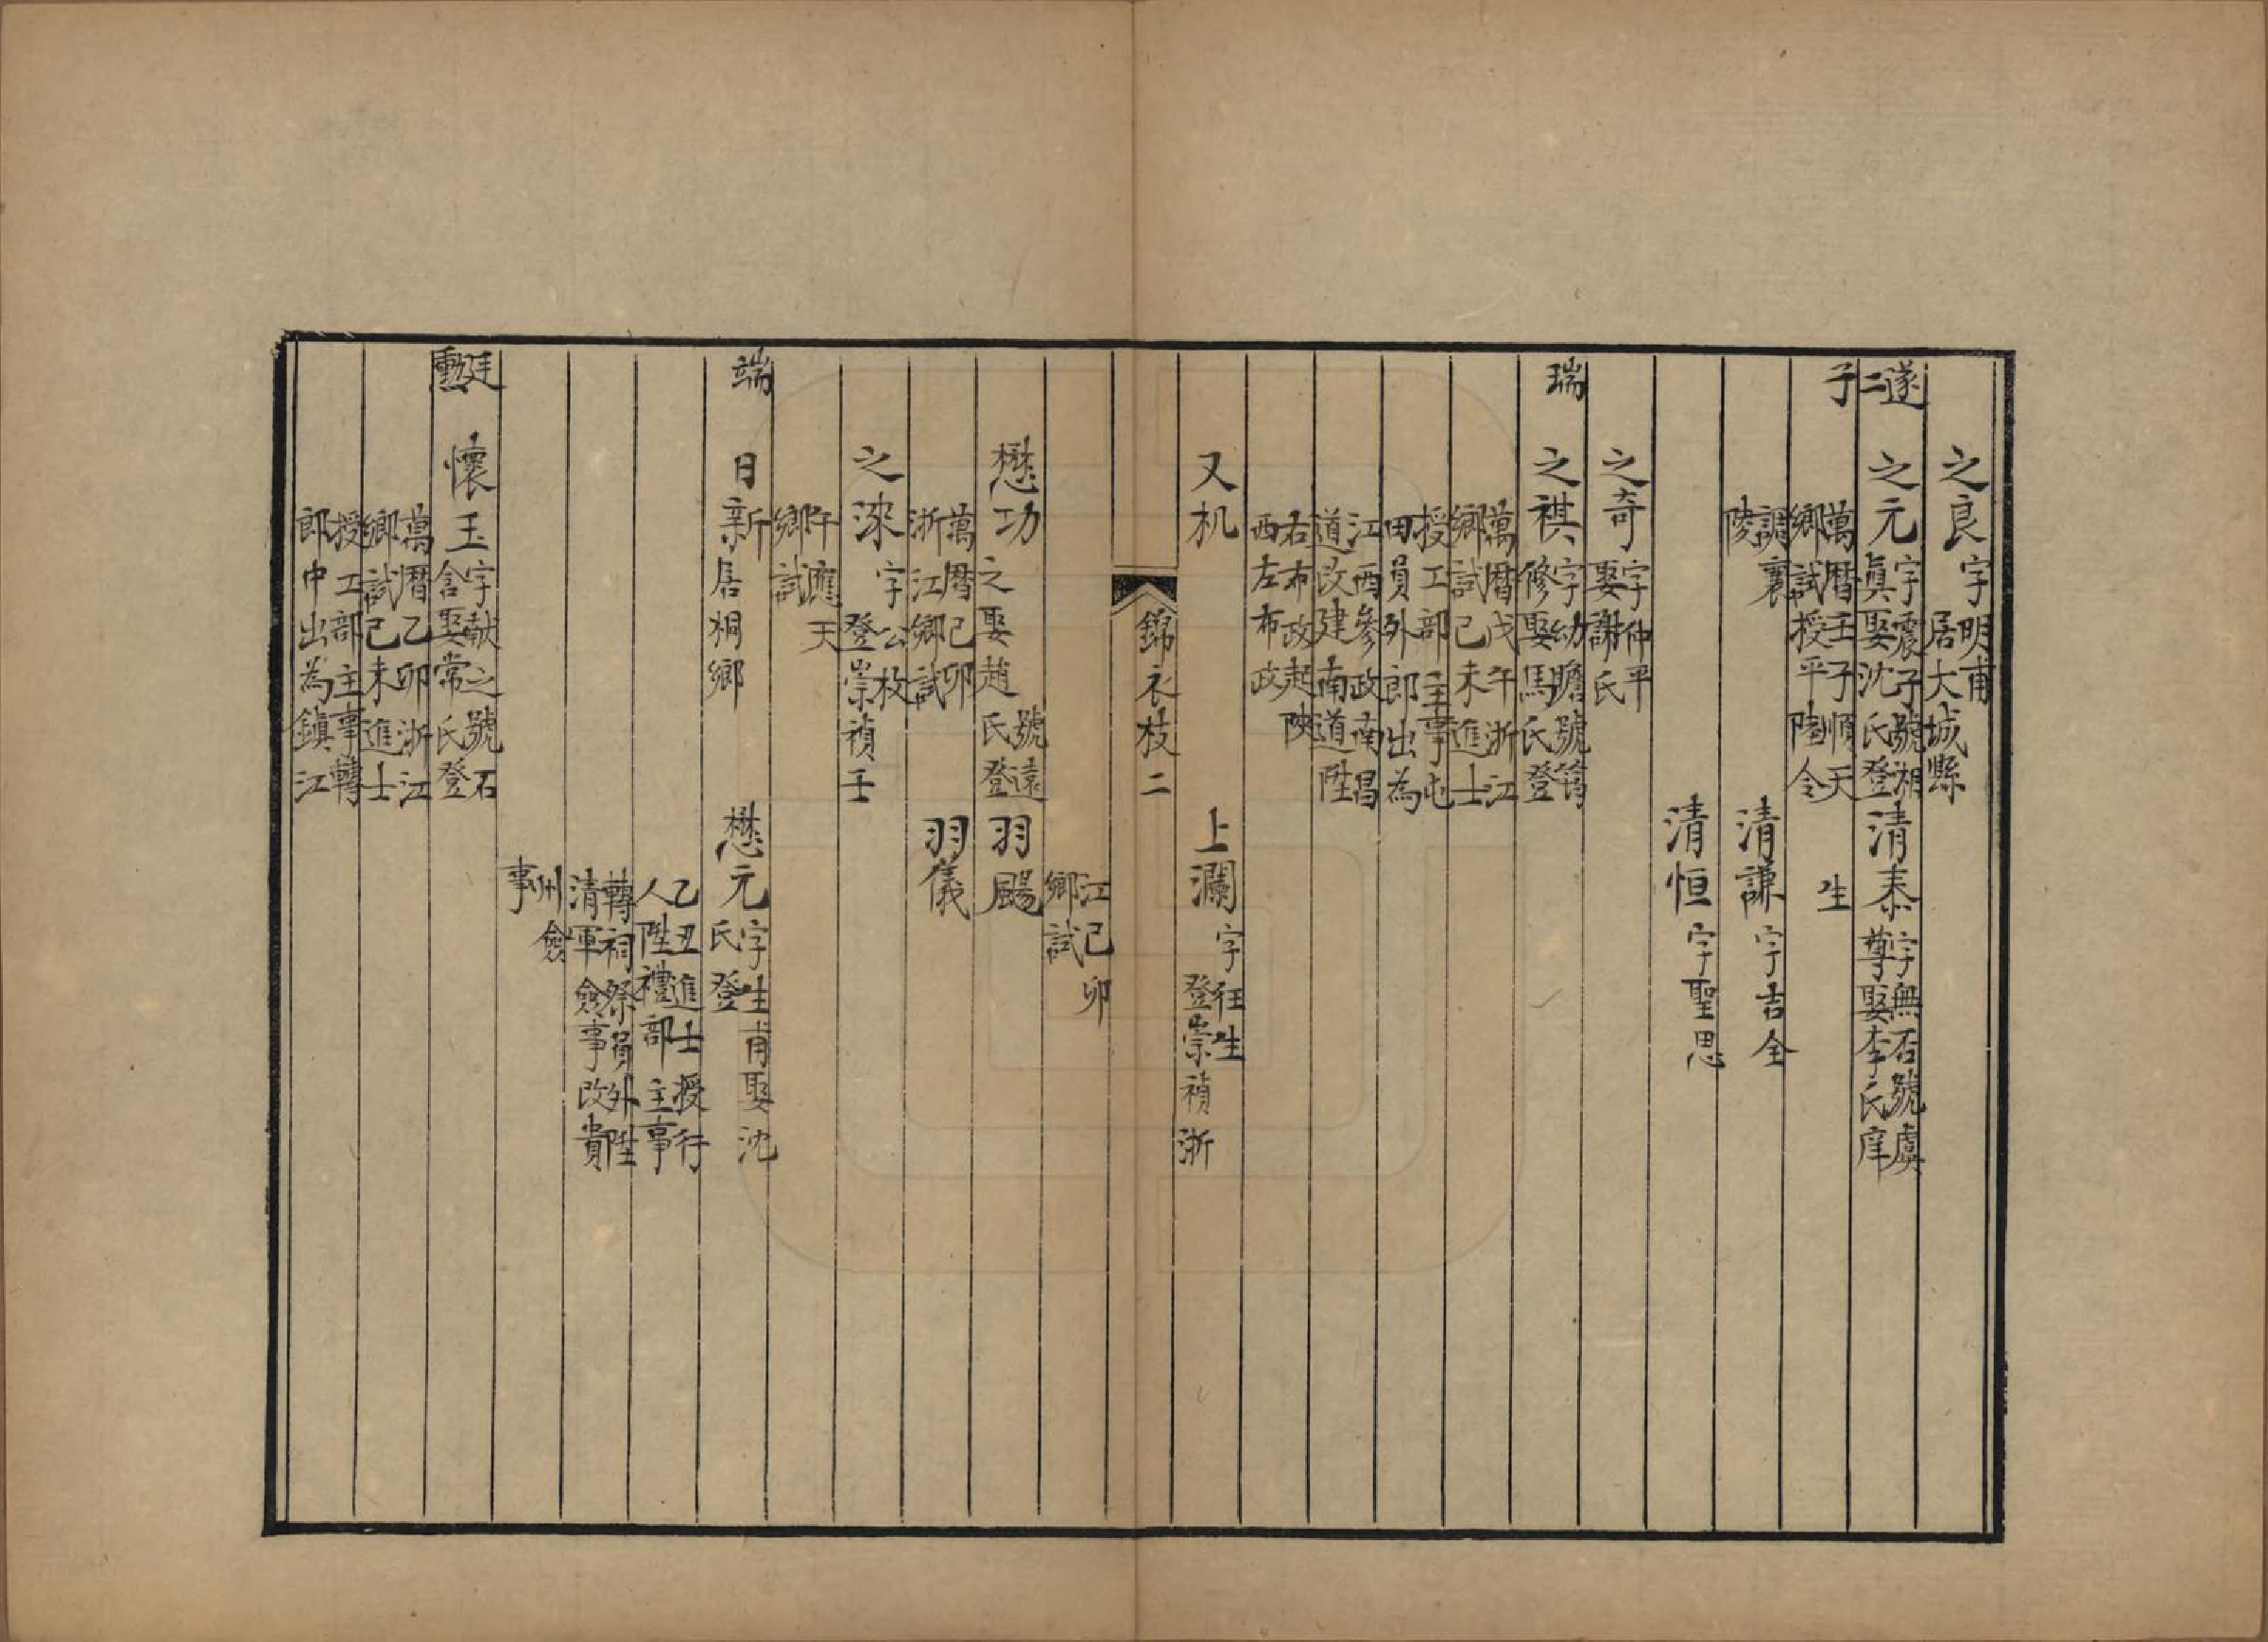 之良字明甫居大城縣
遂二子 之元字震子號湘眞娶沈氏登 清泰字無石號虞尊娶李氏庠
萬曆壬子順天鄉試授平陸令 生
調襄陵 清謙字吉全
清恒字聖思
之奇字仲平娶謝氏
瑞 之祺字幼瞻號篤修娶馬氏登
萬曆戊午浙江鄉試己未進士
授工部主事屯田員外郎出為
江西參政南昌道改建南道陞
右布政起陝西左布政
又机 上瀾字狂生登崇禎浙
錦衣枝二
江己卯鄉試
懋功之娶趙氏號遠登 羽颺
萬曆己卯浙江鄉試 羽儀
之淶字公枚登崇禎壬
午應天鄉試
端 日新居桐鄉 懋元字生甫娶沈氏登
乙丑進士授行人陞禮部主事
轉祠祭員外陞清軍僉事改貴
州僉事
廷勳 懷玉字献之號石含娶常氏登
萬曆乙卯浙江鄉試己未進士
授工部主事轉郎中出為鎮江